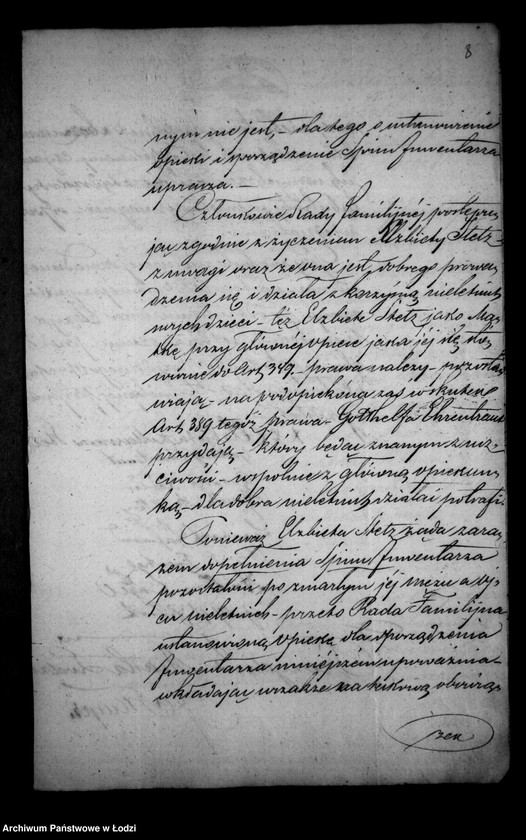 8
nym nie jest, – dla tego o utanowienie
opieki i sporządzenie Spisu Inwentarza
uprasza. –
Członkowie Rady familijnéj postępu
jąc zgodnie z życzeniem Elżbiety Stetz –
z uwagi oraz że ona jest dobrego prowa
dzenia się i działa z korzyścią nieletnich
swych dzieci – też Elżbietę Stetz jako Ma
tkę przy głównéj opiece jaka jéj się sto
wnie do Art. 347 – prawa należy – pozosta
wiają – na podopiekuna zaś w skutek
Art. 389 tegóż prawa – Gotthelfa Ehrentraut
przydają – który będąc znanym z ucz
ciwości – wspólnie z główną opiekun
ką – dla dobra nieletnich działać potrafi.
Ponieważ Elżbieta Stetz żąda zara
zem dopełnienia Spisu Inwentarza
pozostałości po zmarłym jéj mężu a oj
cu nieletnich – przeto Rada Familijna
ustanowioną opiekę dla sporządzenia
Inwentarza niniejszém upoważnia –
wkładając wszakże na takową obowią
zek
Archiwum Państwowe w Łodzi